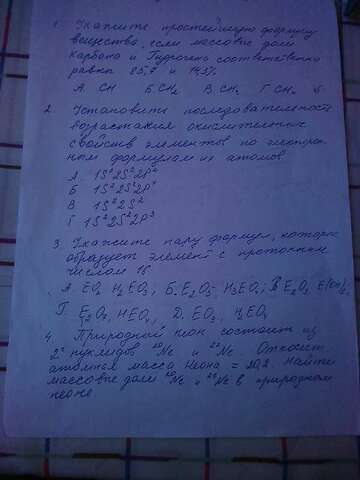 1. Укажите простейшую формулу
вещества, если массовые доли
Карбона и Гидрогена соответственно
равны 85,7 и 14,3%
А. CH Б CH₂ В. CH₃ Г CH₄
2. Установите последовательность
возрастания окислительных
свойств элементов по электрон-
ным формулам их атомов
А 1S²2S²2P²
Б 1S²2S²2P¹
В 1S²2S²
Г 1S²2S²2P³
3. Укажите пару формул, которые
образует элемент с протонным
числом 16
А. EO₂ H₂EO₃; Б. E₂O₅ H₃EO₄; В E₂O₃
Г. HEO₄; Д. EO₃, H₂EO₄
4. Природный неон состоит из
2ˣ нуклидов ²⁰Ne и ²²Ne. Относит.
атомная масса Неона = 20,2. Найти
массовые доли ²⁰Ne и ²²Ne в природном
неоне